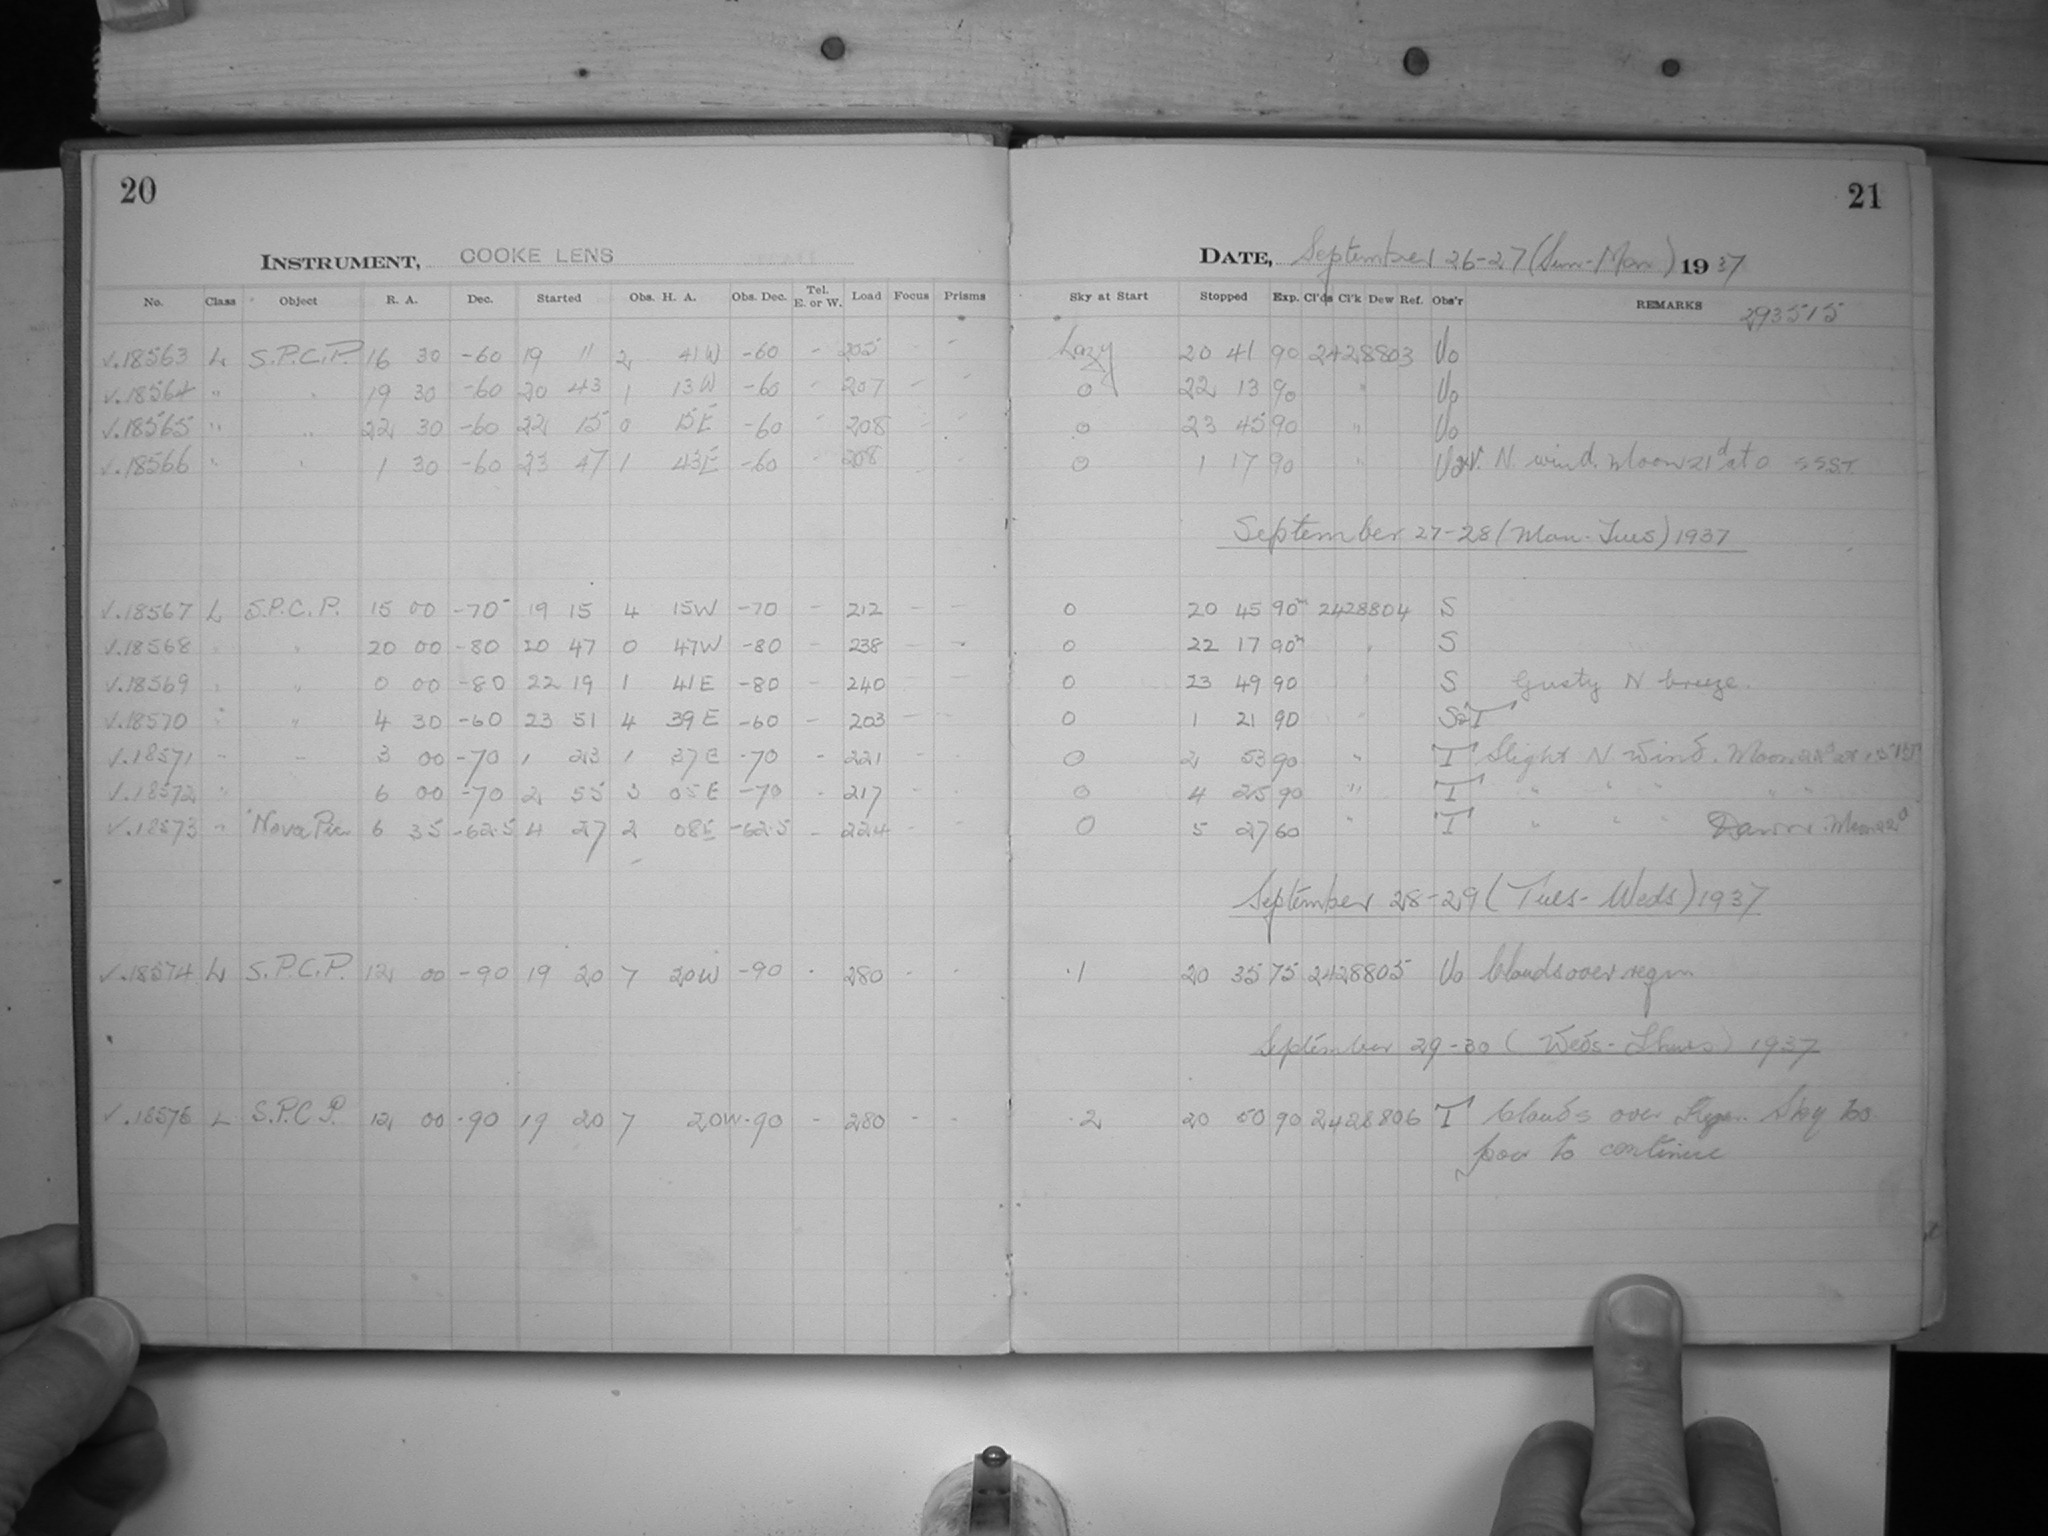 20
INSTRUMENT, COOKE LENS
No. Class Object R. A. Dec. Started Obs. H. A. Obs. Dec. Tel. E. or W. Load Focus Prisms
√.18563 L S.P.C.P. 16 30 -60 19 11 2 41W -60 - 205 - -
√.18564 " " 19 30 -60 20 43 1 13W -60 - 207 - -
√.18565 " " 22 30 -60 22 15 0 15E -60 - 208 - -
√.18566 " " 1 30 -60 23 47 1 43E -60 - 208 - -
√.18567 L S.P.C.P. 15 00 -70 19 15 4 15W -70 - 212 - -
√.18568 " " 20 00 -80 20 47 0 47W -80 - 238 - -
√.18569 " " 0 00 -80 22 19 1 41E -80 - 240 - -
√.18570 " " 4 30 -60 23 51 4 39E -60 - 203 - -
√.18571 " " 3 00 -70 1 23 1 37E -70 - 221 - -
√.18572 " " 6 00 -70 2 55 3 05E -70 - 217 - -
√.18573 " Nova Pic 6 35 -62.5 4 27 2 08E -62.5 - 224 - -
√.18574 L S.P.C.P. 12 00 -90 19 20 7 20W -90 - 280 - -
√.18575 L S.P.C.P. 12 00 -90 19 20 7 20W -90 - 280 - -
21
DATE, September 26-27 (Sun-Mon) 1937
Sky at Start Stopped Exp. Cl'ds Cl'k Dew Ref. Obs'r REMARKS 293515
Hazy 20 41 90 2428803 Uo
0 22 13 90 " Uo
0 23 45 90 " Uo
0 1 17 90 " N. wind. Moon 21d at 0
September 27-28 (Mon-Tues) 1937
0 20 45 90m 2428804 S
0 22 17 90m " S
0 23 49 90 " S Gusty N breeze.
0 1 21 90 " S&T
0 2 53 90 " T Slight N Wind. Moon
0 4 25 90 " T " " " " "
0 5 27 60 " T " " " Dawn. Moon 22d
September 28-29 (Tues-Weds) 1937
.1 20 35 75 2428805 Uo Clouds over region
September 29-30 (Weds-Thurs) 1937
.2 20 50 90 2428806 T Clouds over Region. Sky too
poor to continue